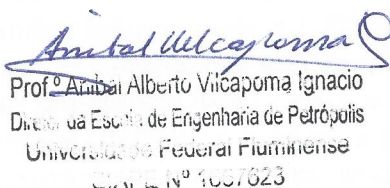 Anibal Vilcapoma
Prof.º Anibal Alberto Vilcapoma Ignacio
Diretor da Escola de Engenharia de Petrópolis
Universidade Federal Fluminense
SIAPE Nº 1057623